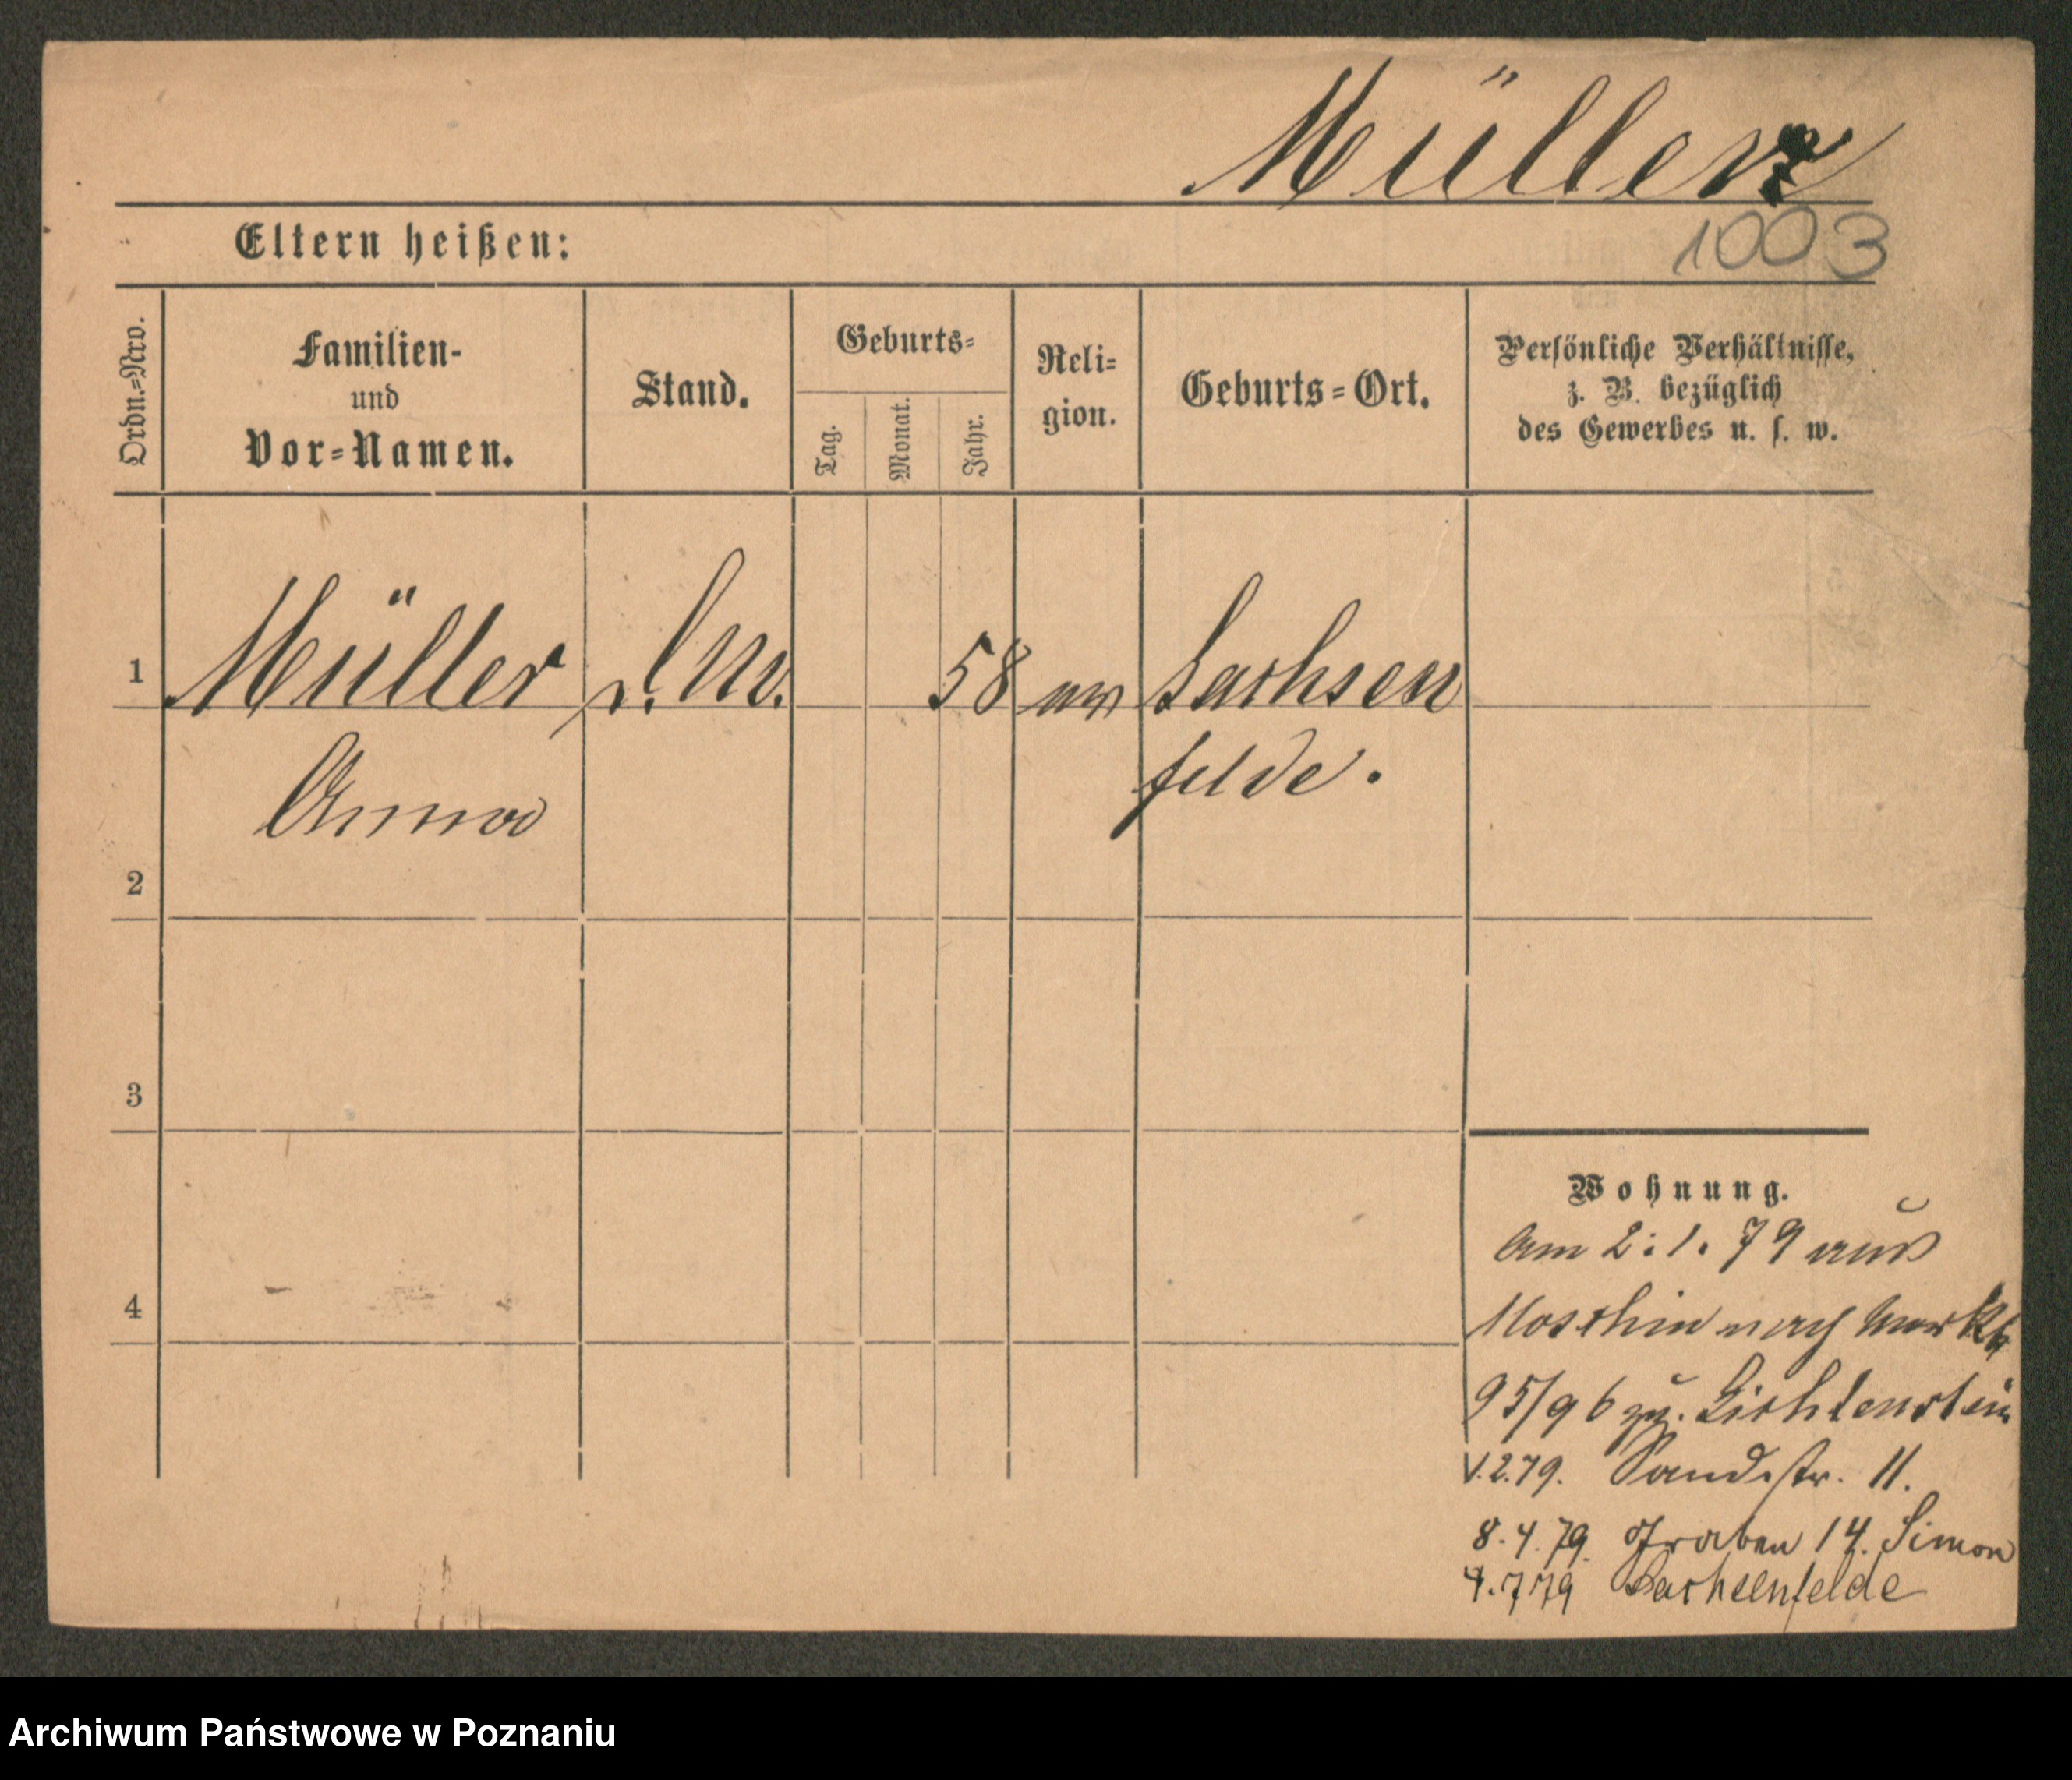 Müller
1003
Eltern heißen:
Ordn.=Nro.
Familien-
und
Vor=Namen.
Stand.
Geburts=
Tag.
Monat.
Jahr.
Reli=
gion.
Geburts=Ort.
Persönliche Verhältnisse,
z. B. bezüglich
des Gewerbes u. s. w.
1
Müller 58 Sachsen
Anna felde.
2
3
4
Wohnung.
Am 2.1.79 aus
Moschin nach Markt
95/96 zu Lichtenstein
1.2.79. Sandstr. 11.
8.4.79. Graben 14. Simon
4.7.79 Sachsenfelde
Archiwum Państwowe w Poznaniu